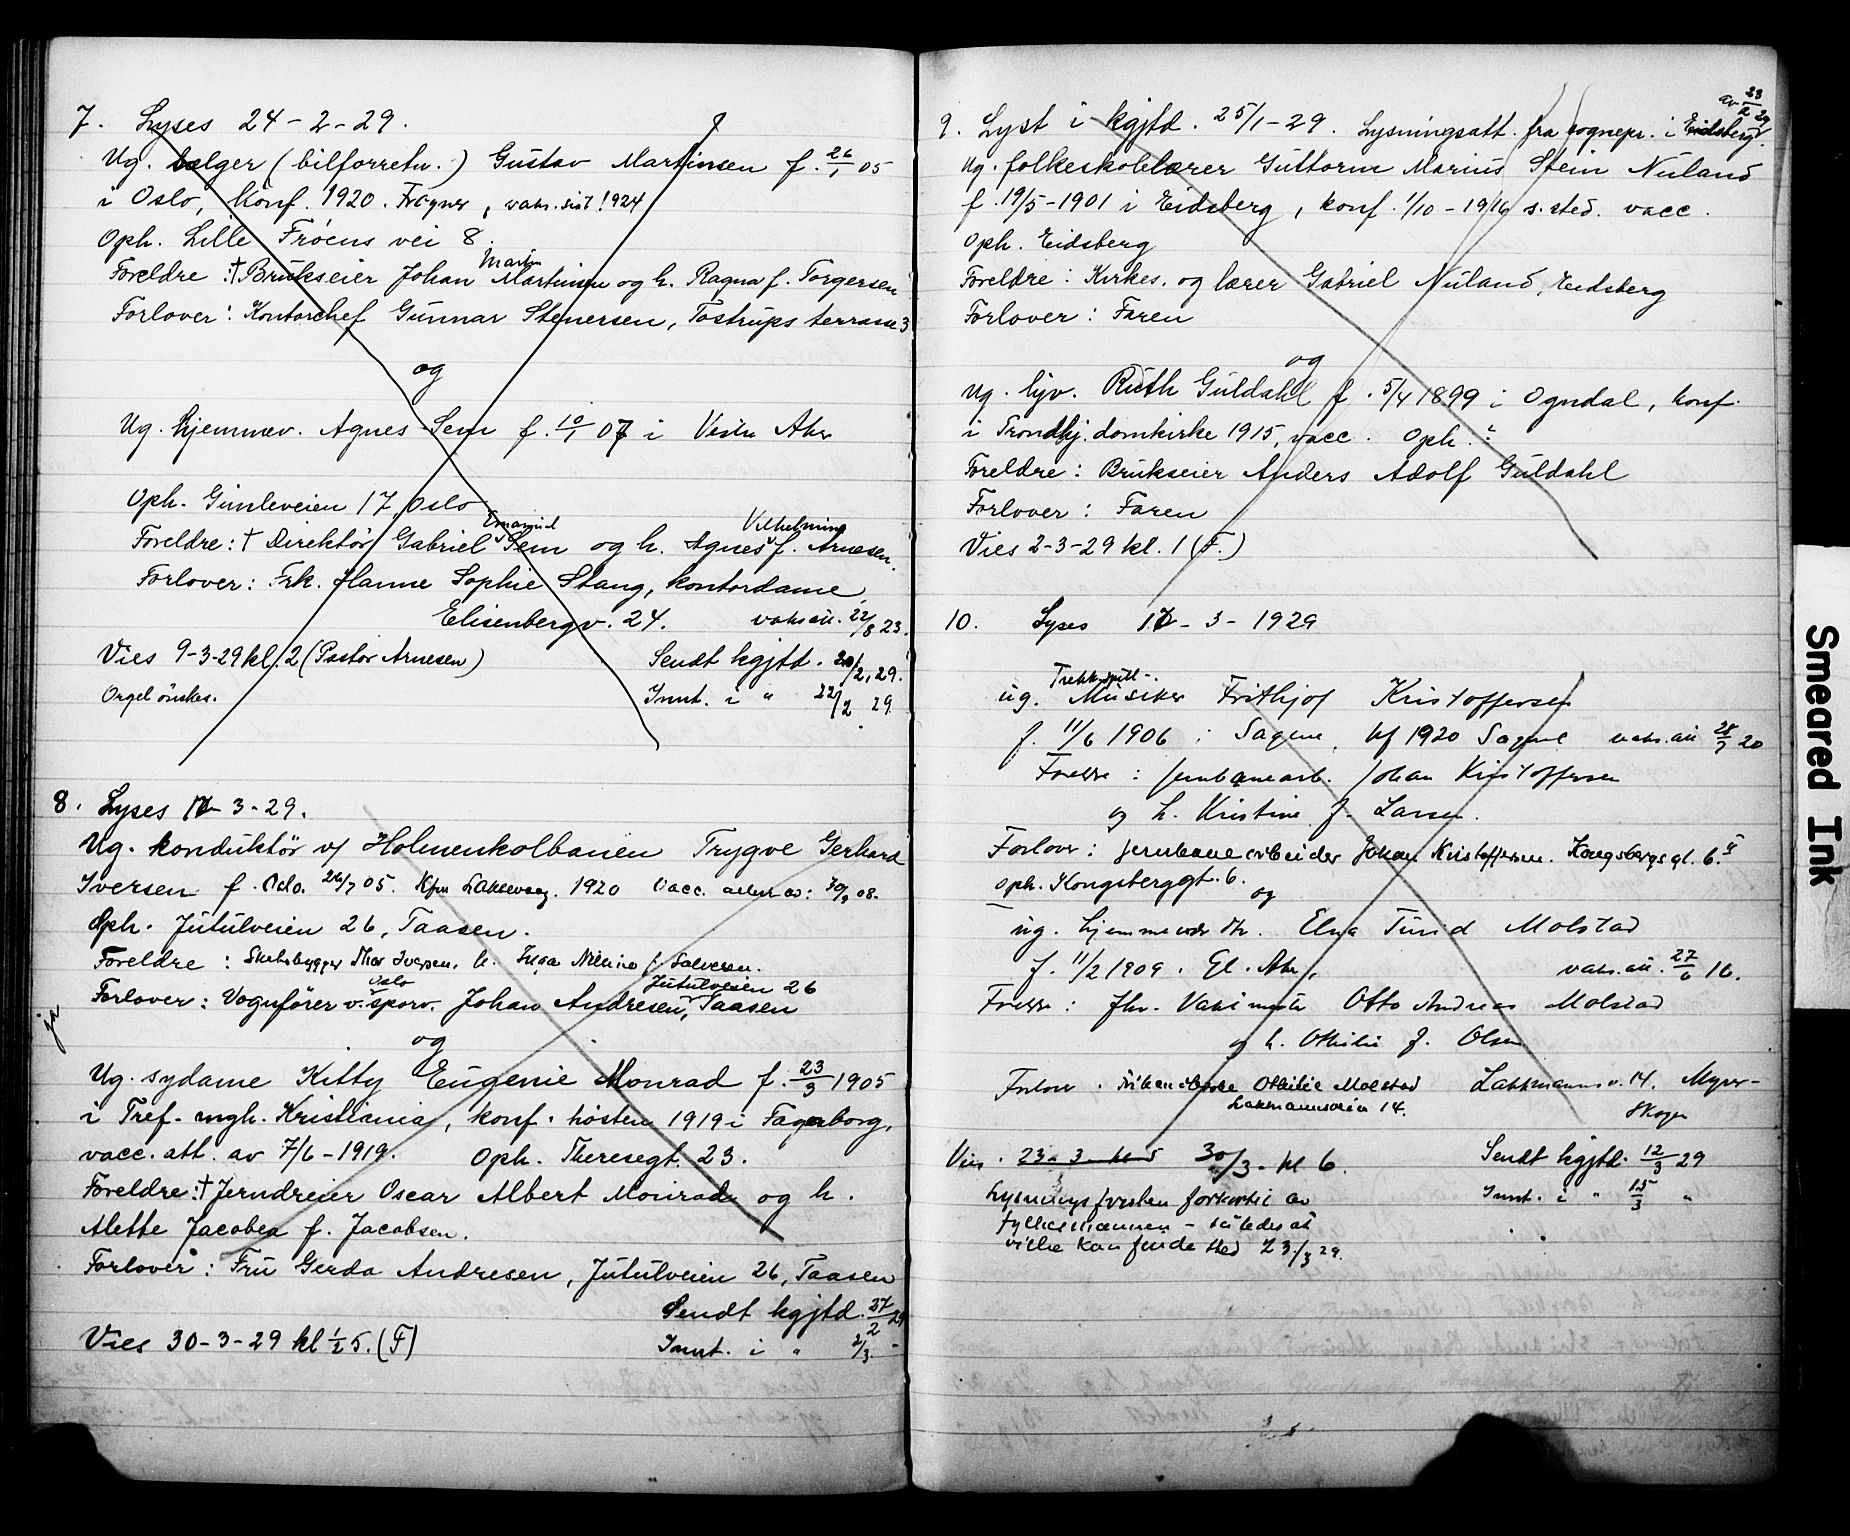 7. Lyses 24-2-29.
Ug. selger (bilforretn.) Gustav Martinsen f. 26/1 05
i Oslo, konf. 1920. Frogner, vaks. sist 1924
Oph. Lille Frøens vei 8.
Foreldre: † Brukseier Johan Martin Martinsen og h. Ragna f. Torgersen
Forlover: Kontorchef Gunnar Stenersen, Tostrups terrasse 3
og
Ug. hjemmev. Agnes Sem f. 10/1 07 i Vestre Aker
Oph. Gimleveien 17, Oslo
Foreldre: † Direktør Gabriel Emanuel Sem og h. Agnes Vilhelmine f. Arnesen.
Forlover: Frk. Hanne Sophie Stang, kontordame,
Elisenbergv. 24. vaks.att. 22/8 23.
Vies 9-3-29 kl. 2 (Pastor Arnesen) Sendt kgjtd. 20/2, 29.
Orgel ønskes. Innt. i " 22/2 29
8. Lyses 17-3-29.
Ug. konduktör v/ Holmenkolbanen Trygve Gerhard
Iversen f. Oslo. 26/7 05. 1920 Vacc. av: 30/9 08.
Oph. Jutulveien 26, Taasen.
Foreldre: Skibsbygger Thor Iversen. h. Inga f. Salvesen.
Forlover: Vognfører v. Oslo sporv. Johan Andresen, Jutulveien 26 Taasen
ja
og
Ug. sydame Kitty Eugenie Monrad f. 23/3 1905
i Tref. mgh. Kristiania, konf. høsten 1919 i Fagerborg,
vacc. att. av 7/6-1919. Oph. Theresegt. 23.
Foreldre: † Jerndreier Oscar Albert Monrad og h.
Alette Jacobea f. Jacobsen.
Forlover: Fru Gerda Andresen, Jutulveien 26, Taasen
Sendt kgjtd. 27/2 29
Vies 30-3-29 kl 1/2 5. (F) Innt. i " 2/3. -
9. Lyst i kgjtd. 25/1-29. Lysningsatt. fra sognepr. i Eidsberg av 23/2 29
Ug. folkeskolelærer Guttorm Marius Stein Nuland
f. 19/5-1901 i Eidsberg, konf. 1/10-1916 s. sted. vacc.
Oph. Eidsberg
Foreldre: Kirkes. og lærer Gabriel Nuland, Eidsberg
Forlover: Faren
og
Ug. hjv. Ruth Guldahl f. 5/4 1899 i Ogndal, konf.
i Trondhj. domkirke 1915, vacc. Oph.?
Foreldre: Brukseier Anders Adolf Guldahl
Forlover: Faren
Vies 2-3-29 kl. 1 (F.)
10. Lyses 17-3-1929
Trekkspill-
ug. Musiker Frithjof Kristoffersen
f. 11/6 1906 i Sagene, kf 1920 Sagene vaks.att 28/7 20
Foreldre: jernbanearb. Johan Kristoffersen
og h. Kristine f. Larsen.
Forlover: jernbanearbeider Johan Kristoffersen. Kongsbergsgt. 6. II
Oph. Kongsberggt. 6.
og
ug. hjemmevær. dtr. Elna Turid Molstad
f. 11/2 1909. Gl. Aker, vaks.att. 27/6 16.
Foreldre: fhv. Vaktmester Otto Andreas Molstad
og h. Othilie f. Olsen
Forlover. Othilie Molstad Lakkmannsv. 14. Myrer-
Lakmannsveien 14. skogen
Vies. 23-3-kl 5 30/3-kl 6. Sendt kgjtd. 12/3 29
Lysningsfristen forkortet av Innt. i " 15/3 "
fylkesmannen - således at
vielse kan finde sted 23/3 29.
Smeared Ink